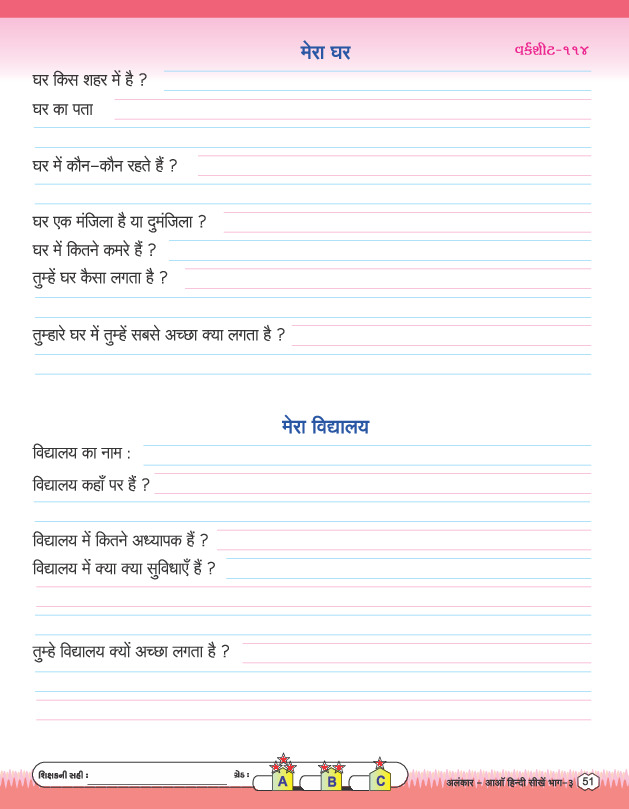 मेरा घर
વર્કશીટ-૧૧૪
घर किस शहर में है ?
घर का पता
घर में कौन-कौन रहते हैं ?
घर एक मंजिला है या दुमंजिला ?
घर में कितने कमरे हैं ?
तुम्हें घर कैसा लगता है ?
तुम्हारे घर में तुम्हें सबसे अच्छा क्या लगता है ?
मेरा विद्यालय
विद्यालय का नाम :
विद्यालय कहाँ पर हैं ?
विद्यालय में कितने अध्यापक हैं ?
विद्यालय में क्या क्या सुविधाएँ हैं ?
तुम्हे विद्यालय क्यों अच्छा लगता है ?
શિક્ષકની સહી :
ગ્રેડ :
A B C
अलंकार - आओं हिन्दी सीखें भाग-३ 51